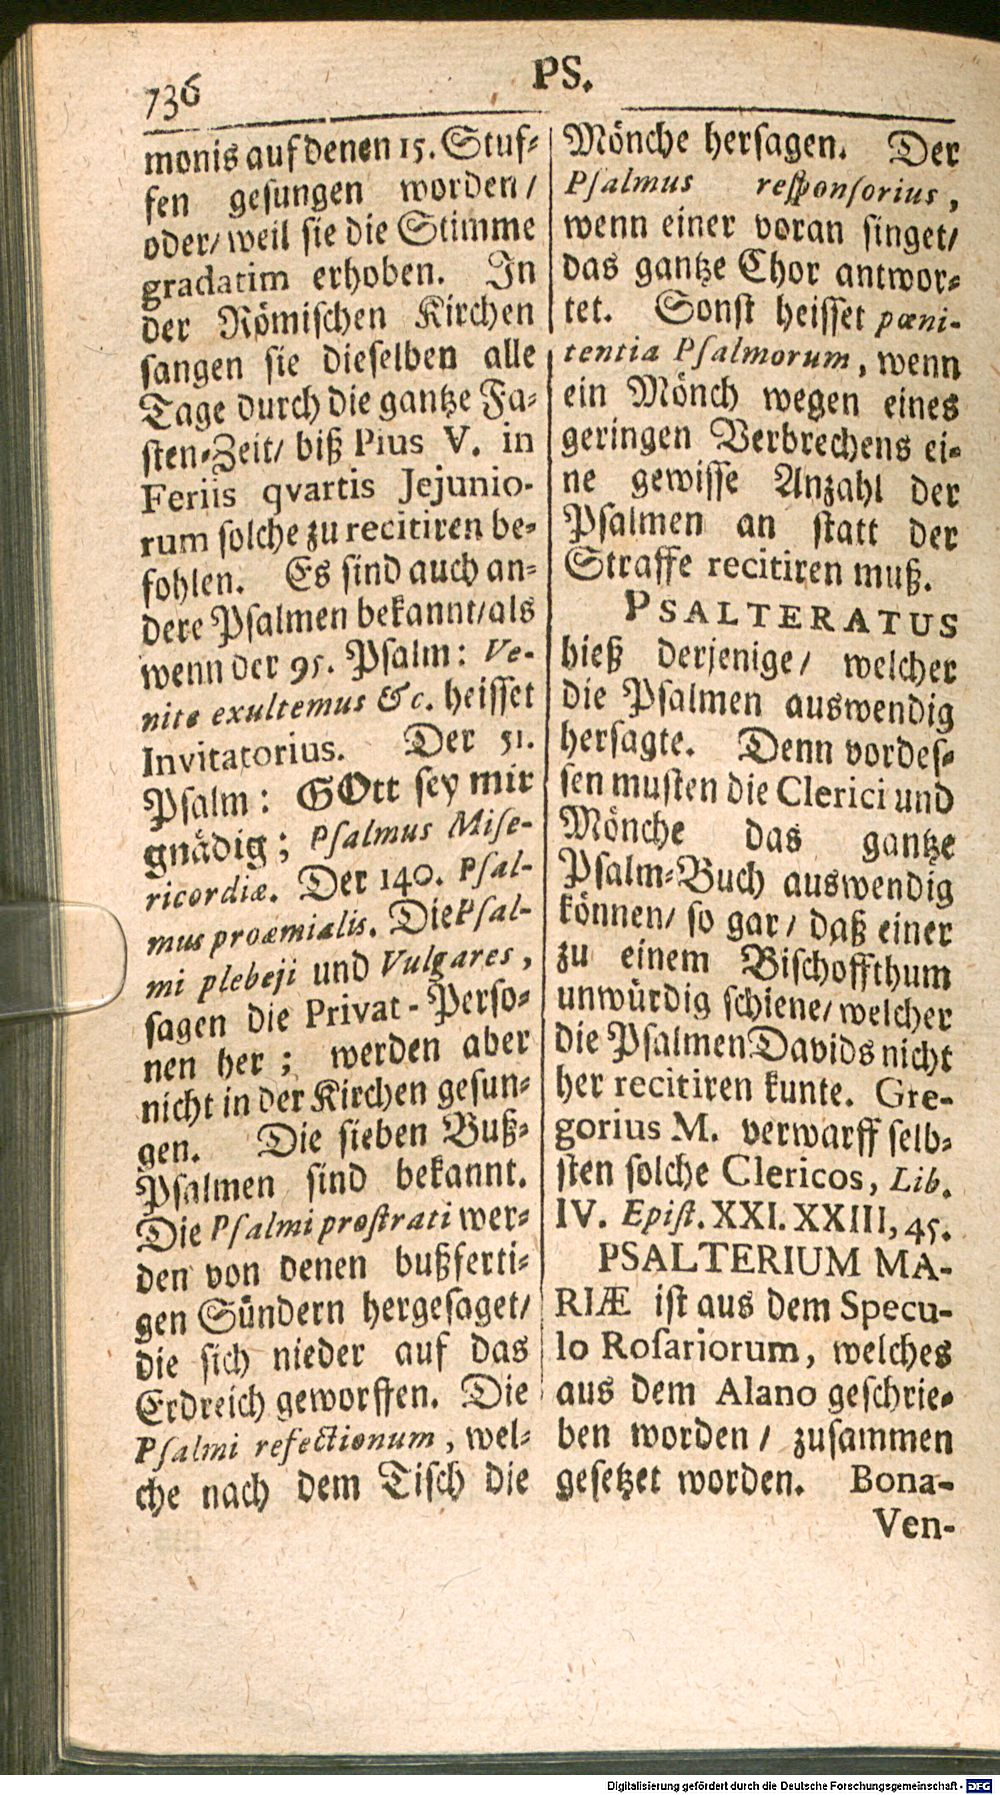 736
PS.
monis auf denen 15. Stuf-
fen gesungen worden/
oder/ weil sie die Stimme
gradatim erhoben. In
der Römischen Kirchen
sangen sie dieselben alle
Tage durch die gantze Fa-
sten-Zeit/ biß Pius V. in
Feriis qvartis Jejunio-
rum solche zu recitiren be-
fohlen. Es sind auch an-
dere Psalmen bekannt/ als
wenn der 95. Psalm: Ve-
nite exultemus &c. heisset
Invitatorius. Der 51.
Psalm: GOtt sey mir
gnädig; Psalmus Mise-
ricordiæ. Der 140. Psal-
mus proæmialis. Die Psal-
mi plebeji und Vulgares,
sagen die Privat-Perso-
nen her; werden aber
nicht in der Kirchen gesun-
gen. Die sieben Buß-
Psalmen sind bekannt.
Die Psalmi prostrati wer-
den von denen bußferti-
gen Sündern hergesaget/
die sich nieder auf das
Erdreich geworffen. Die
Psalmi refectionum, wel-
che nach dem Tisch die
Mönche hersagen. Der
Psalmus responsorius,
wenn einer voran singet/
das gantze Chor antwor-
tet. Sonst heisset pœni-
tentia Psalmorum, wenn
ein Mönch wegen eines
geringen Verbrechens ei-
ne gewisse Anzahl der
Psalmen an statt der
Straffe recitiren muß.
PSALTERATUS
hieß derjenige/ welcher
die Psalmen auswendig
hersagte. Denn vordes-
sen musten die Clerici und
Mönche das gantze
Psalm-Buch auswendig
können/ so gar/ daß einer
zu einem Bischoffthum
unwürdig schiene/ welcher
die Psalmen Davids nicht
her recitiren kunte. Gre-
gorius M. verwarff selb-
sten solche Clericos, Lib.
IV. Epist. XXI. XXIII, 45.
PSALTERIUM MA-
RIÆ ist aus dem Specu-
lo Rosariorum, welches
aus dem Alano geschrie-
ben worden/ zusammen
gesetzet worden. Bona-
Ven-
Digitalisierung gefördert durch die Deutsche Forschungsgemeinschaft - DFG